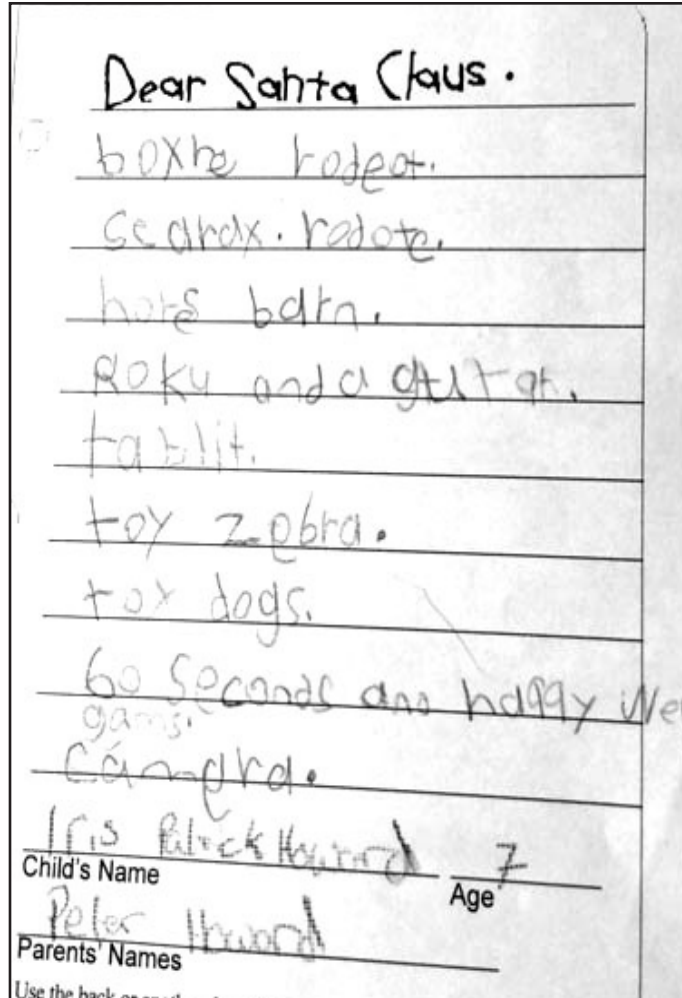 Dear Santa Claus.
boxhe rodeot.
scarax. rodote.
hors barn.
Roku and a gutar.
tablit.
toy zebra.
toy dogs.
60 seconds and happy We
gams.
camera.
Iris Howard 7
Child's Name Age
Peter Howard
Parents' Names
Use the back or